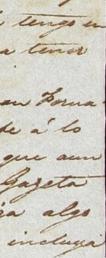 tengo en
a tener
en forma
te á lo
que aun
Gazeta
ga algo
incluya